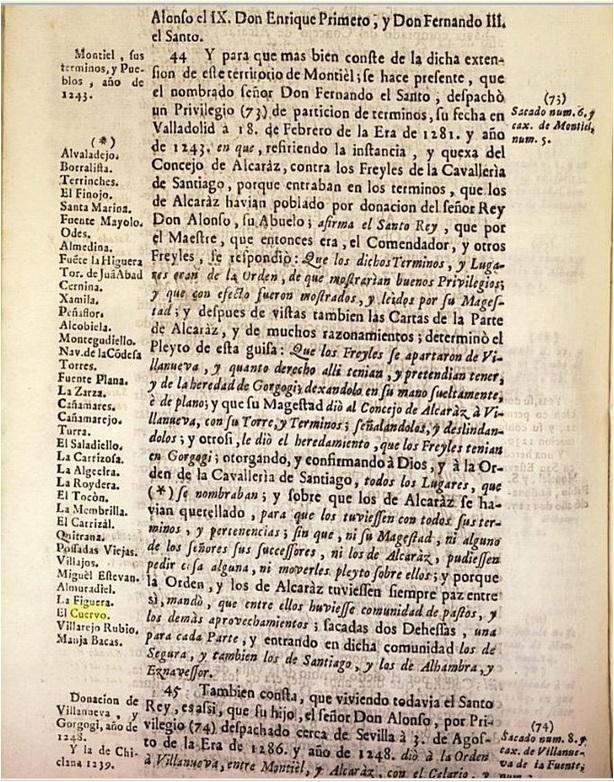 Alonso el IX. Don Enrique Primero, y Don Fernando III.
el Santo.
Montiel, sus
terminos, y Pue-
blos, año de
1243.
44 Y para que mas bien conste de la dicha exten-
sion de este territorio de Montièl; se hace presente, que
el nombrado señor Don Fernando el Santo, despachò
un Privilegio (73) de particion de terminos, su fecha en
Valladolid à 18. de Febrero de la Era de 1281. y año
de 1243. en que, refiriendo la instancia, y quexa del
Concejo de Alcaràz, contra los Freyles de la Cavallerìa
de Santiago, porque entraban en los terminos, que los
de Alcaràz havian poblado por donacion del señor Rey
Don Alonso, su Abuelo; afirma el Santo Rey, que por
el Maestre, que entonces era, el Comendador, y otros
Freyles, se respondiò: Que los dichos Terminos, y Luga-
res eran de la Orden, de que mostrarian buenos Privilegios;
y que con efecto fueron mostrados, y leidos por su Mages-
tad; y despues de vistas tambien las Cartas de la Parte
de Alcaràz, y de muchos razonamientos; determinò el
Pleyto de esta guisa: Que los Freyles se apartaron de Vi-
llanueva, y quanto derecho alli tenian, y pretendian tener,
y de la heredad de Gorgogi; dexandolo en su mano sueltamente,
è de plano; y que su Magestad diò al Concejo de Alcaràz à Vi-
llanueva, con su Torre, y Terminos; señalandolos, y deslindan-
dolos; y otrosi, le diò el heredamiento, que los Freyles tenian
en Gorgogi; otorgando, y confirmando à Dios, y à la Or-
den de la Cavallerìa de Santiago, todos los Lugares, que
(*) se nombraban; y sobre que los de Alcaràz se ha-
vian querellado, para que los tuviessen con todos sus ter-
minos, y pertenencias; sin que, ni su Magestad, ni alguno
de los señores sus successores, ni los de Alcaràz, pudiessen
pedir cosa alguna, ni moverles pleyto sobre ellos; y porque
la Orden, y los de Alcaràz tuviessen siempre paz entre
sì, mandò, que entre ellos huviesse comunidad de pastos, y
los demàs aprovechamientos; sacadas dos Dehessas, una
para cada Parte, y entrando en dicha comunidad los de
Segura, y tambien los de Santiago, y los de Alhambra, y
Eznavessor.
(73)
Sacado num. 6. y
cax. de Montiel,
num. 5.
(*)
Alvaladejo.
Borralista.
Terrinches.
El Finojo.
Santa Marina.
Fuente Mayolo.
Odes.
Almedina.
Fuẽte la Higuera
Tor. de Juã Abad
Cernina.
Xamila.
Peñaflor.
Alcobiela.
Montegudiello.
Nav. de la Cõdesa
Torres.
Fuente Plana.
La Zarza.
Cañamares.
Cañamarejo.
Turra.
El Saladiello.
La Carrizosa.
La Algecira.
La Roydera.
El Tocòn.
La Membrilla.
El Carrizàl.
Quitrana.
Possadas Viejas.
Villajos.
Miguèl Estevan.
Almuradiel.
La Figuera.
El Cuervo.
Villarejo Rubio.
Manja Bacas.
Donacion de
Villanueva, y
Gorgogi, año de
1248.
Y la de Chi-
clana 1239.
45 Tambien consta, que viviendo todavia el Santo
Rey, es assi, que su hijo, el señor Don Alonso, por Pri-
vilegio (74) despachado cerca de Sevilla à 3. de Agos-
to de la Era de 1286. y año de 1248. diò à la Orden
à Villanueva, entre Montièl, y Alcaràz, con el Celario,
(74)
Sacado num. 8. y
cax. de Villanue-
va de la Fuente,